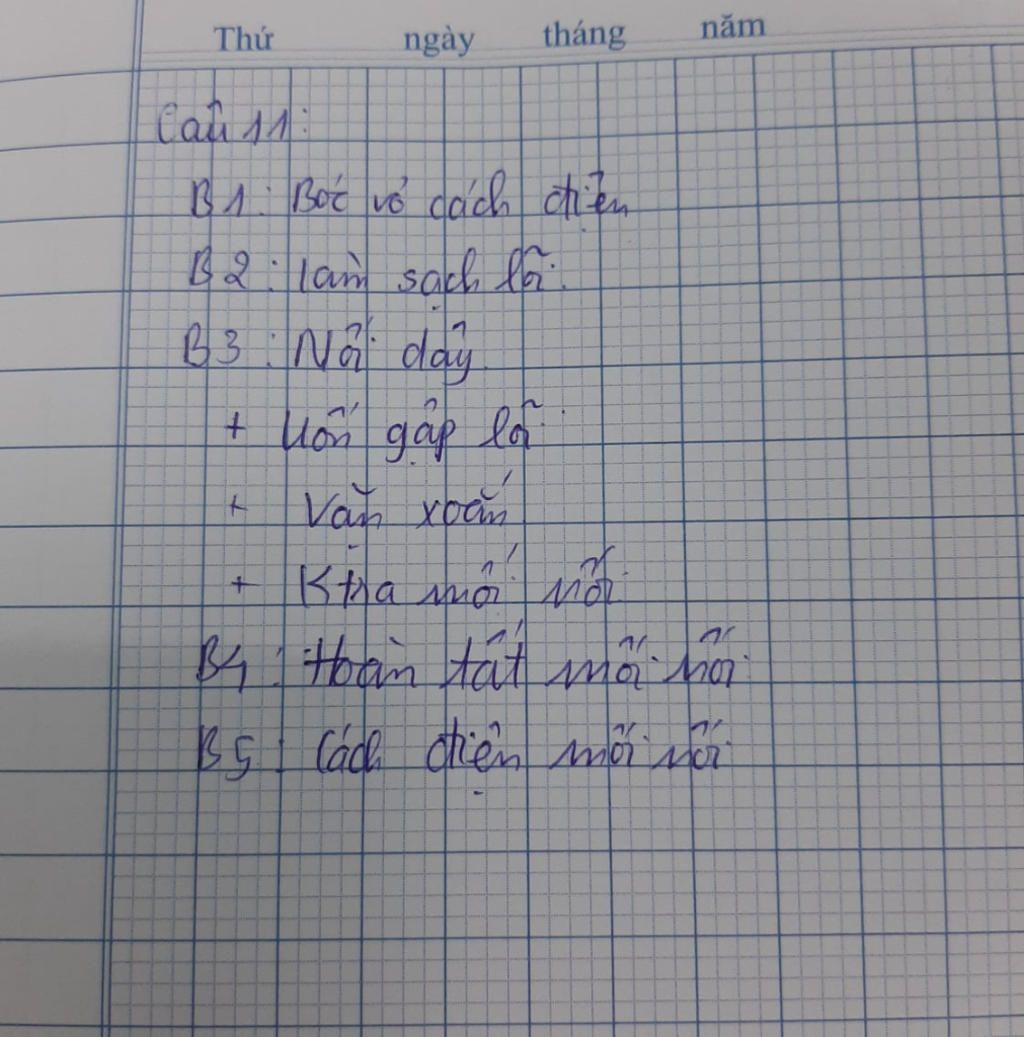 Thứ ngày tháng năm
Câu 11:
B1: Bóc vỏ cách điện
B2: làm sạch lõi
B3: Nối dây
+ Uốn gập lõi
+ Vặn xoắn
+ Ktra mối nối
B4: Hoàn tất mối nối
B5: Cách điện mối nối